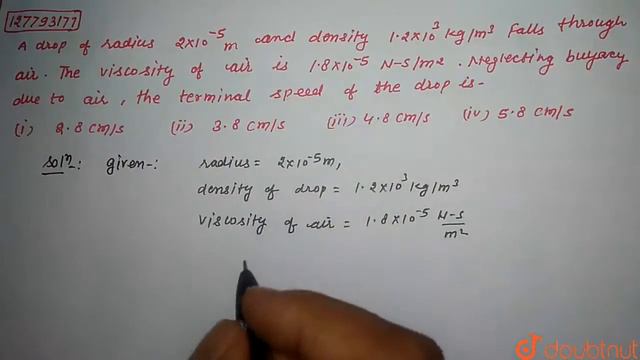 127793177
A drop of radius 2×10⁻⁵ m and density 1.2×10³ kg/m³ falls through
air. The viscosity of air is 1.8×10⁻⁵ N-S/m². Neglecting buyavcy
due to air, the terminal speed of the drop is-
(i) 2.8 cm/s (ii) 3.8 cm/s (iii) 4.8 cm/s (iv) 5.8 cm/s
Solⁿ: given-: radius = 2×10⁻⁵ m,
density of drop = 1.2×10³ kg/m³
viscosity of air = 1.8×10⁻⁵ N-S/m²
doubtnut